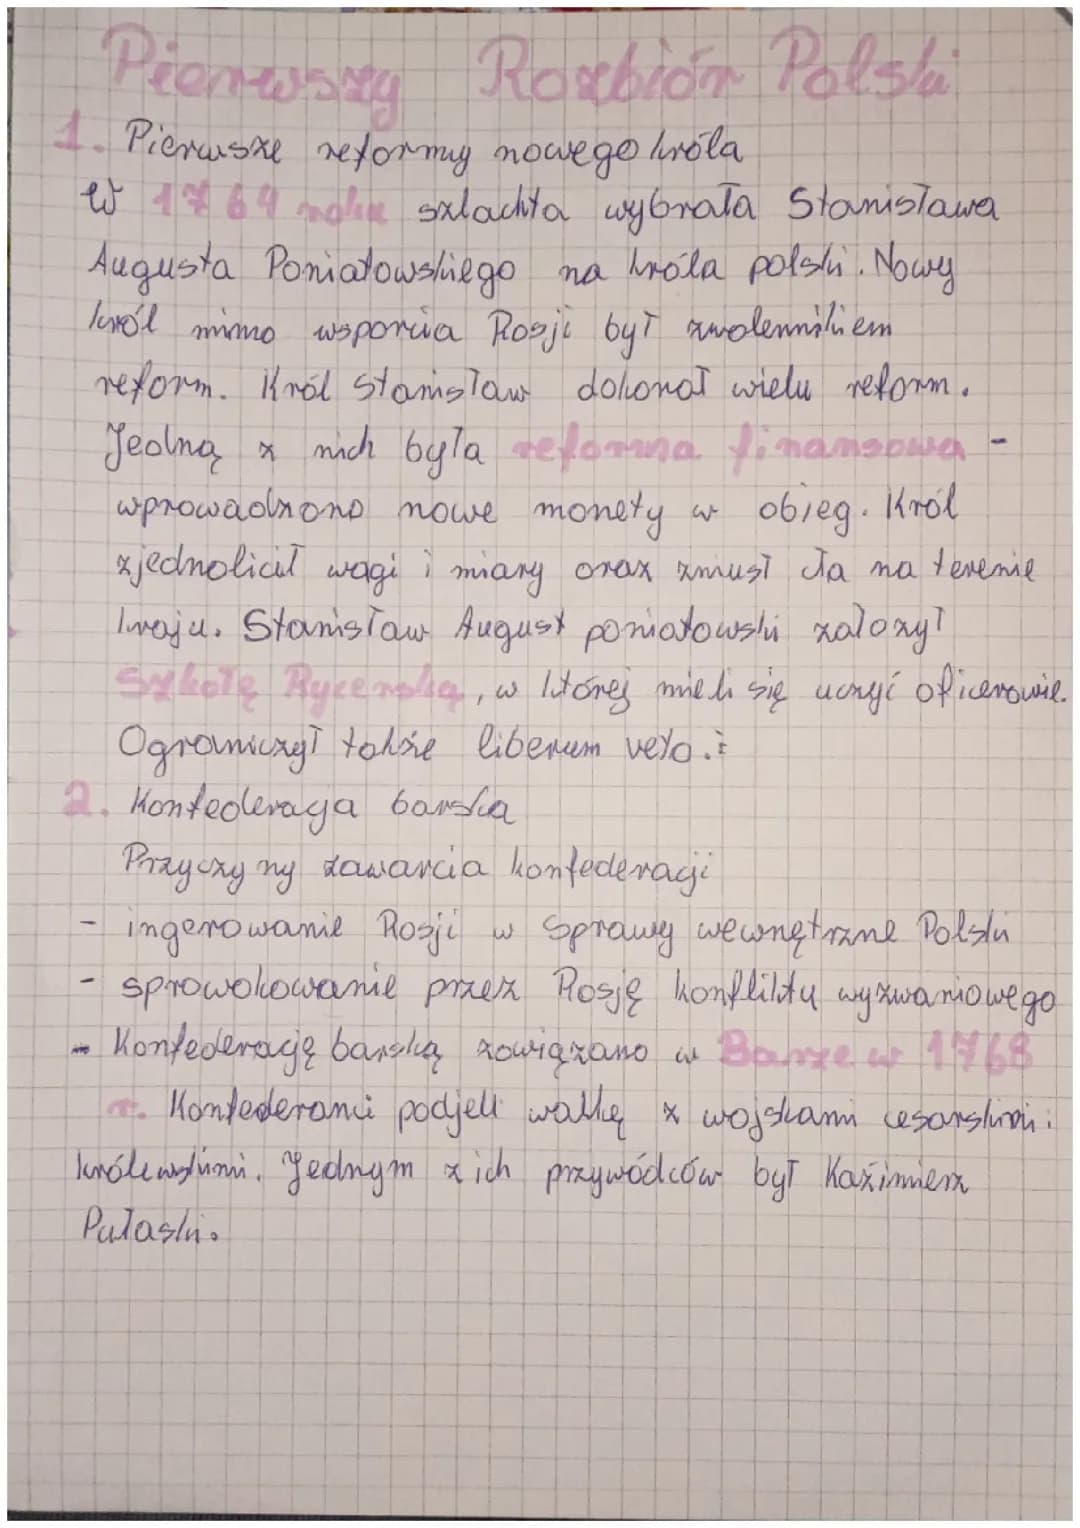 Pierwszy Rozbiór Polski
1. Pierwsze reformy nowego króla
W 1764 roku szlachta wybrała Stanisława
Augusta Poniatowskiego na króla polski. Nowy
król mimo wsparcia Rosji był zwolennikiem
reform. Król Stanisław dokonał wielu reform.
Jedną z nich była reforma finansowa -
wprowadzono nowe monety w obieg. Król
zjednolicił wagi i miary oraz zniusł cła na terenie
kraju. Stanisław August poniatowski założył
Szkołę Rycerską, w której mieli się uczyć oficerowie.
Ograniczył także liberum veto.
2. Konfederacja barska
Przyczyny zawarcia konfederacji
- ingerowanie Rosji w sprawy wewnętrzne Polski
- sprowokowanie przez Rosję konfliktu wyzwaniowego
- Konfederację barską zawiązano w Barze w 1768
r. Konfederanci podjeli walkę z wojskami cesarskimi i
królewskimi. Jednym z ich przywódców był Kazimierz
Pułaski.